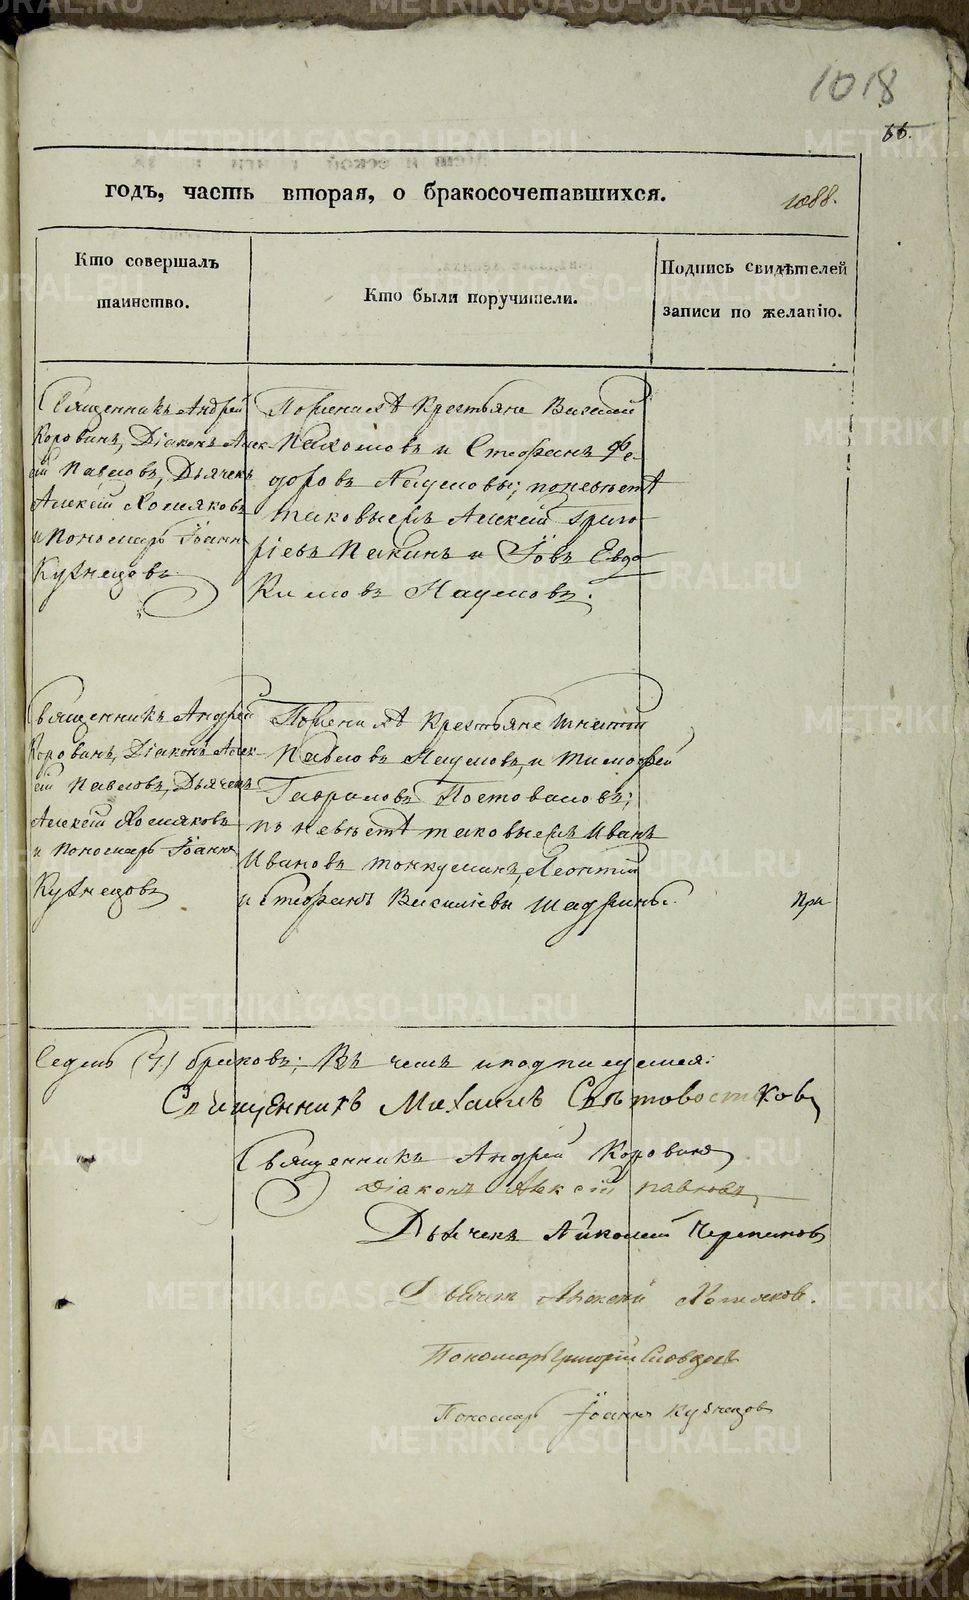 1018
66.
годъ, часть вторая, о бракосочетавшихся.
1088.
Кто совершалъ
таинство.
Кто были поручители.
Подпись свидѣтелей
записи по желанію.
Священникъ Андрей
Коровинъ, Діаконъ Алек-
сѣй Павловъ, Дьячекъ
Алексѣй Хомяковъ
и Пономарь Іоаннъ
Кузнецовъ
По женихѣ Крестьяне Василій
Пахомовъ и Стефанъ Ѳе-
доровъ Наумовы; по невѣстѣ
таковыежъ Алексѣй Григо-
ріевъ Пакинъ и Іовъ Евдо
кимовъ Наумовъ.
Священникъ Андрей
Коровинъ, Діаконъ Алек-
сѣй Павловъ, Дьячекъ
Алексѣй Хомяковъ
и Пономарь Іоаннъ
Кузнецовъ
По женихѣ Крестьяне Игнатій
Павловъ Наумовъ, и Тимофей
Гавриловъ Постоваловъ;
по невѣстѣ таковыежъ Иванъ
Ивановъ Леонтій
и Стефанъ Васильевы Шадрины.
При
Седмь (7) браковъ; Въ чемъ и подписуемся:
Священникъ Михаилъ Свѣтовостоковъ
Священникъ Андрей Коровинъ
Діаконъ Алексѣй Павловъ
Дьячекъ Николай Черепановъ
Дьячекъ Алексѣй Хомяковъ.
Пономарь Григорій Словцовъ
Пономарь Іоаннъ Кузнецовъ
METRIKI.GASO-URAL.RU